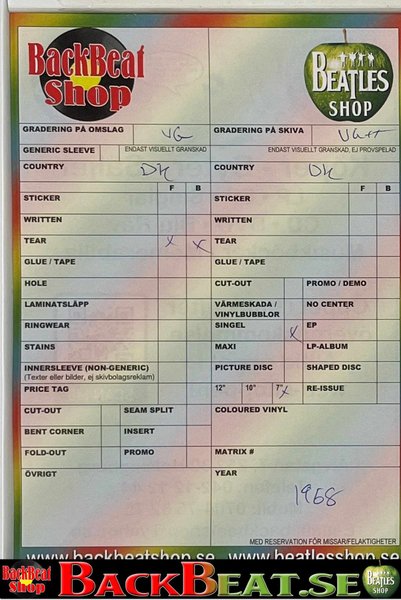 BackBeat
Shop
BEATLES
SHOP
GRADERING PÅ OMSLAG VG GRADERING PÅ SKIVA VG++
GENERIC SLEEVE ENDAST VISUELLT GRANSKAD ENDAST VISUELLT GRANSKAD, EJ PROVSPELAD
COUNTRY DK COUNTRY DK
F B F B
STICKER STICKER
WRITTEN WRITTEN
TEAR X X TEAR
GLUE / TAPE GLUE / TAPE
HOLE CUT-OUT PROMO / DEMO
LAMINATSLÄPP VÄRMESKADA / VINYLBUBBLOR NO CENTER
RINGWEAR SINGEL X EP
STAINS MAXI LP-ALBUM
INNERSLEEVE (NON-GENERIC) PICTURE DISC SHAPED DISC
(Texter eller bilder, ej skivbolagsreklam)
PRICE TAG 12" 10" 7" X RE-ISSUE
CUT-OUT SEAM SPLIT COLOURED VINYL
BENT CORNER INSERT
FOLD-OUT PROMO MATRIX #
ÖVRIGT YEAR
1968
MED RESERVATION FÖR MISSAR/FELAKTIGHETER
www.backbeatshop.se www.beatlesshop.se
BackBeat
Shop
BACKBEAT.SE
BEATLES
SHOP